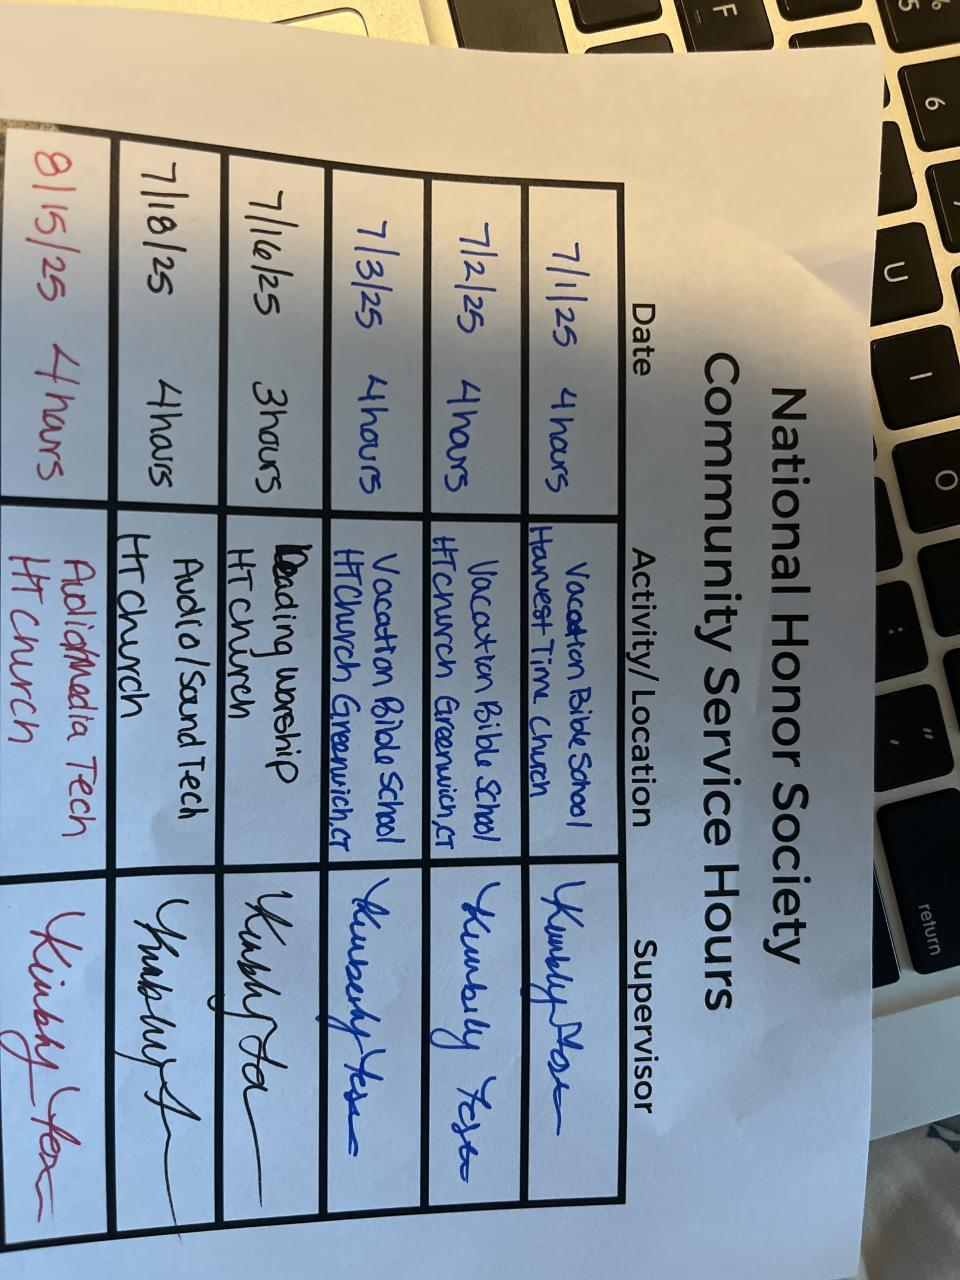 National Honor Society
Community Service Hours
Date Activity/Location Supervisor
7/1/25 4 hours
Vacation Bible School
Harvest Time Church
7/2/25 4 hours
Vacation Bible School
HTChurch Greenwich, CT
Kimberly
7/3/25 4 hours
Vacation Bible School
HTChurch Greenwich, CT
Kimberly
7/16/25 3 hours
Leading worship
HT church
7/18/25 4 hours
Audio/Sound Tech
HT church
8/15/25 4 hours
Media Tech
HT church
F
5
6
U
I
O
:
"
,
return